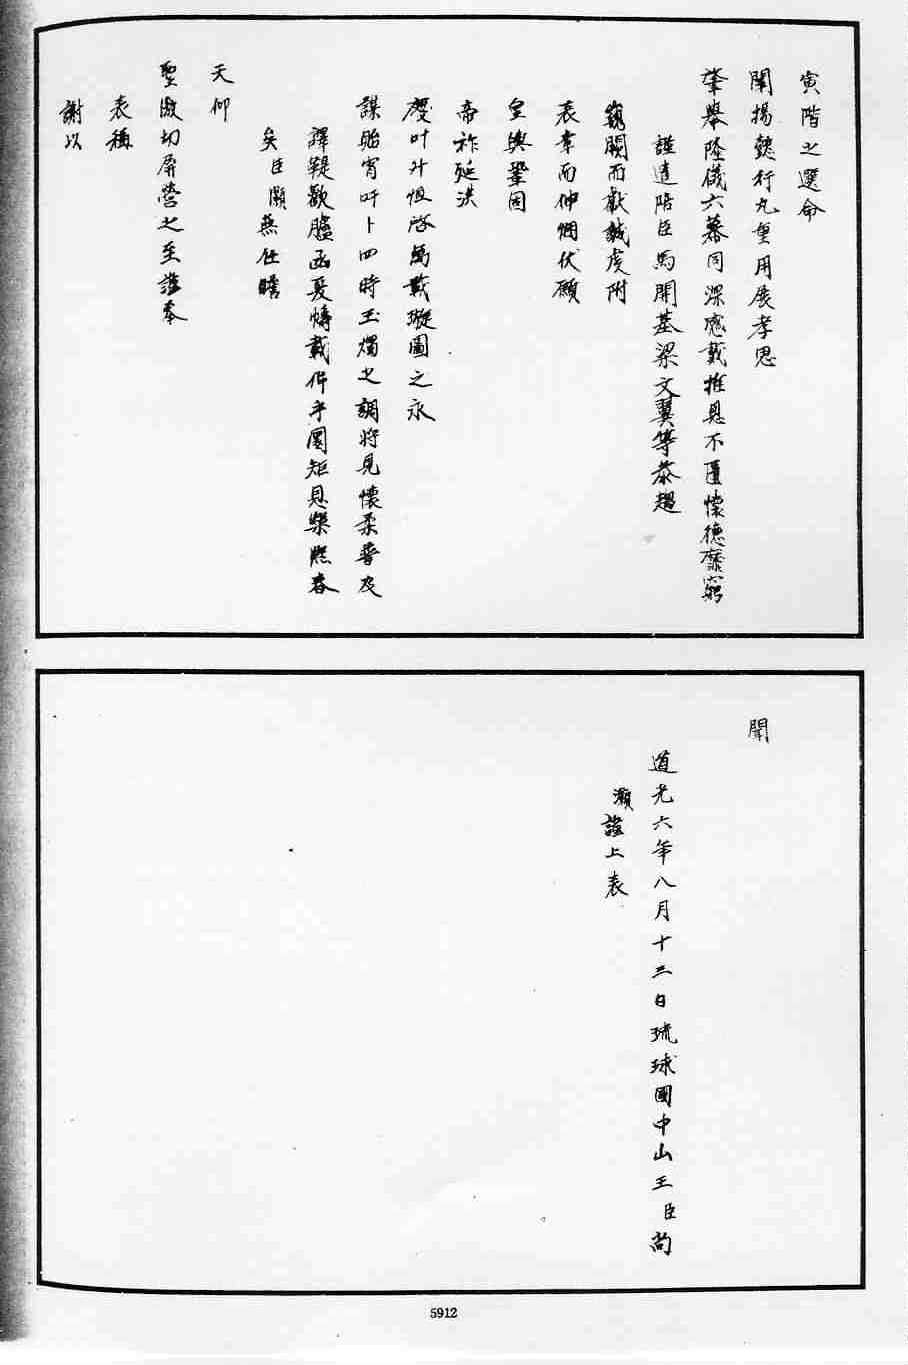 寅階之選命
闡揚懿行九重用展孝思
肇舉隆儀六幕同深感戴推恩不匱懷德靡窮
謹遣陪臣馬開基梁文翼等恭趨
巍闕而獻誠虔附
表章而伸悃伏願
皇輿鞏固
帝祚延洪
慶叶升恒啓萬載璇圖之永
謀貽宵旰卜四時玉燭之調將見懷柔普及
譯鞮歡臚函夏幬載侔乎圜矩見樂熙春
矣臣灝無任瞻
天仰
聖激切屏營之至謹奉
表稱
謝以
聞
道光六年八月十三日琉球國中山王臣尚
灝謹上表
5912